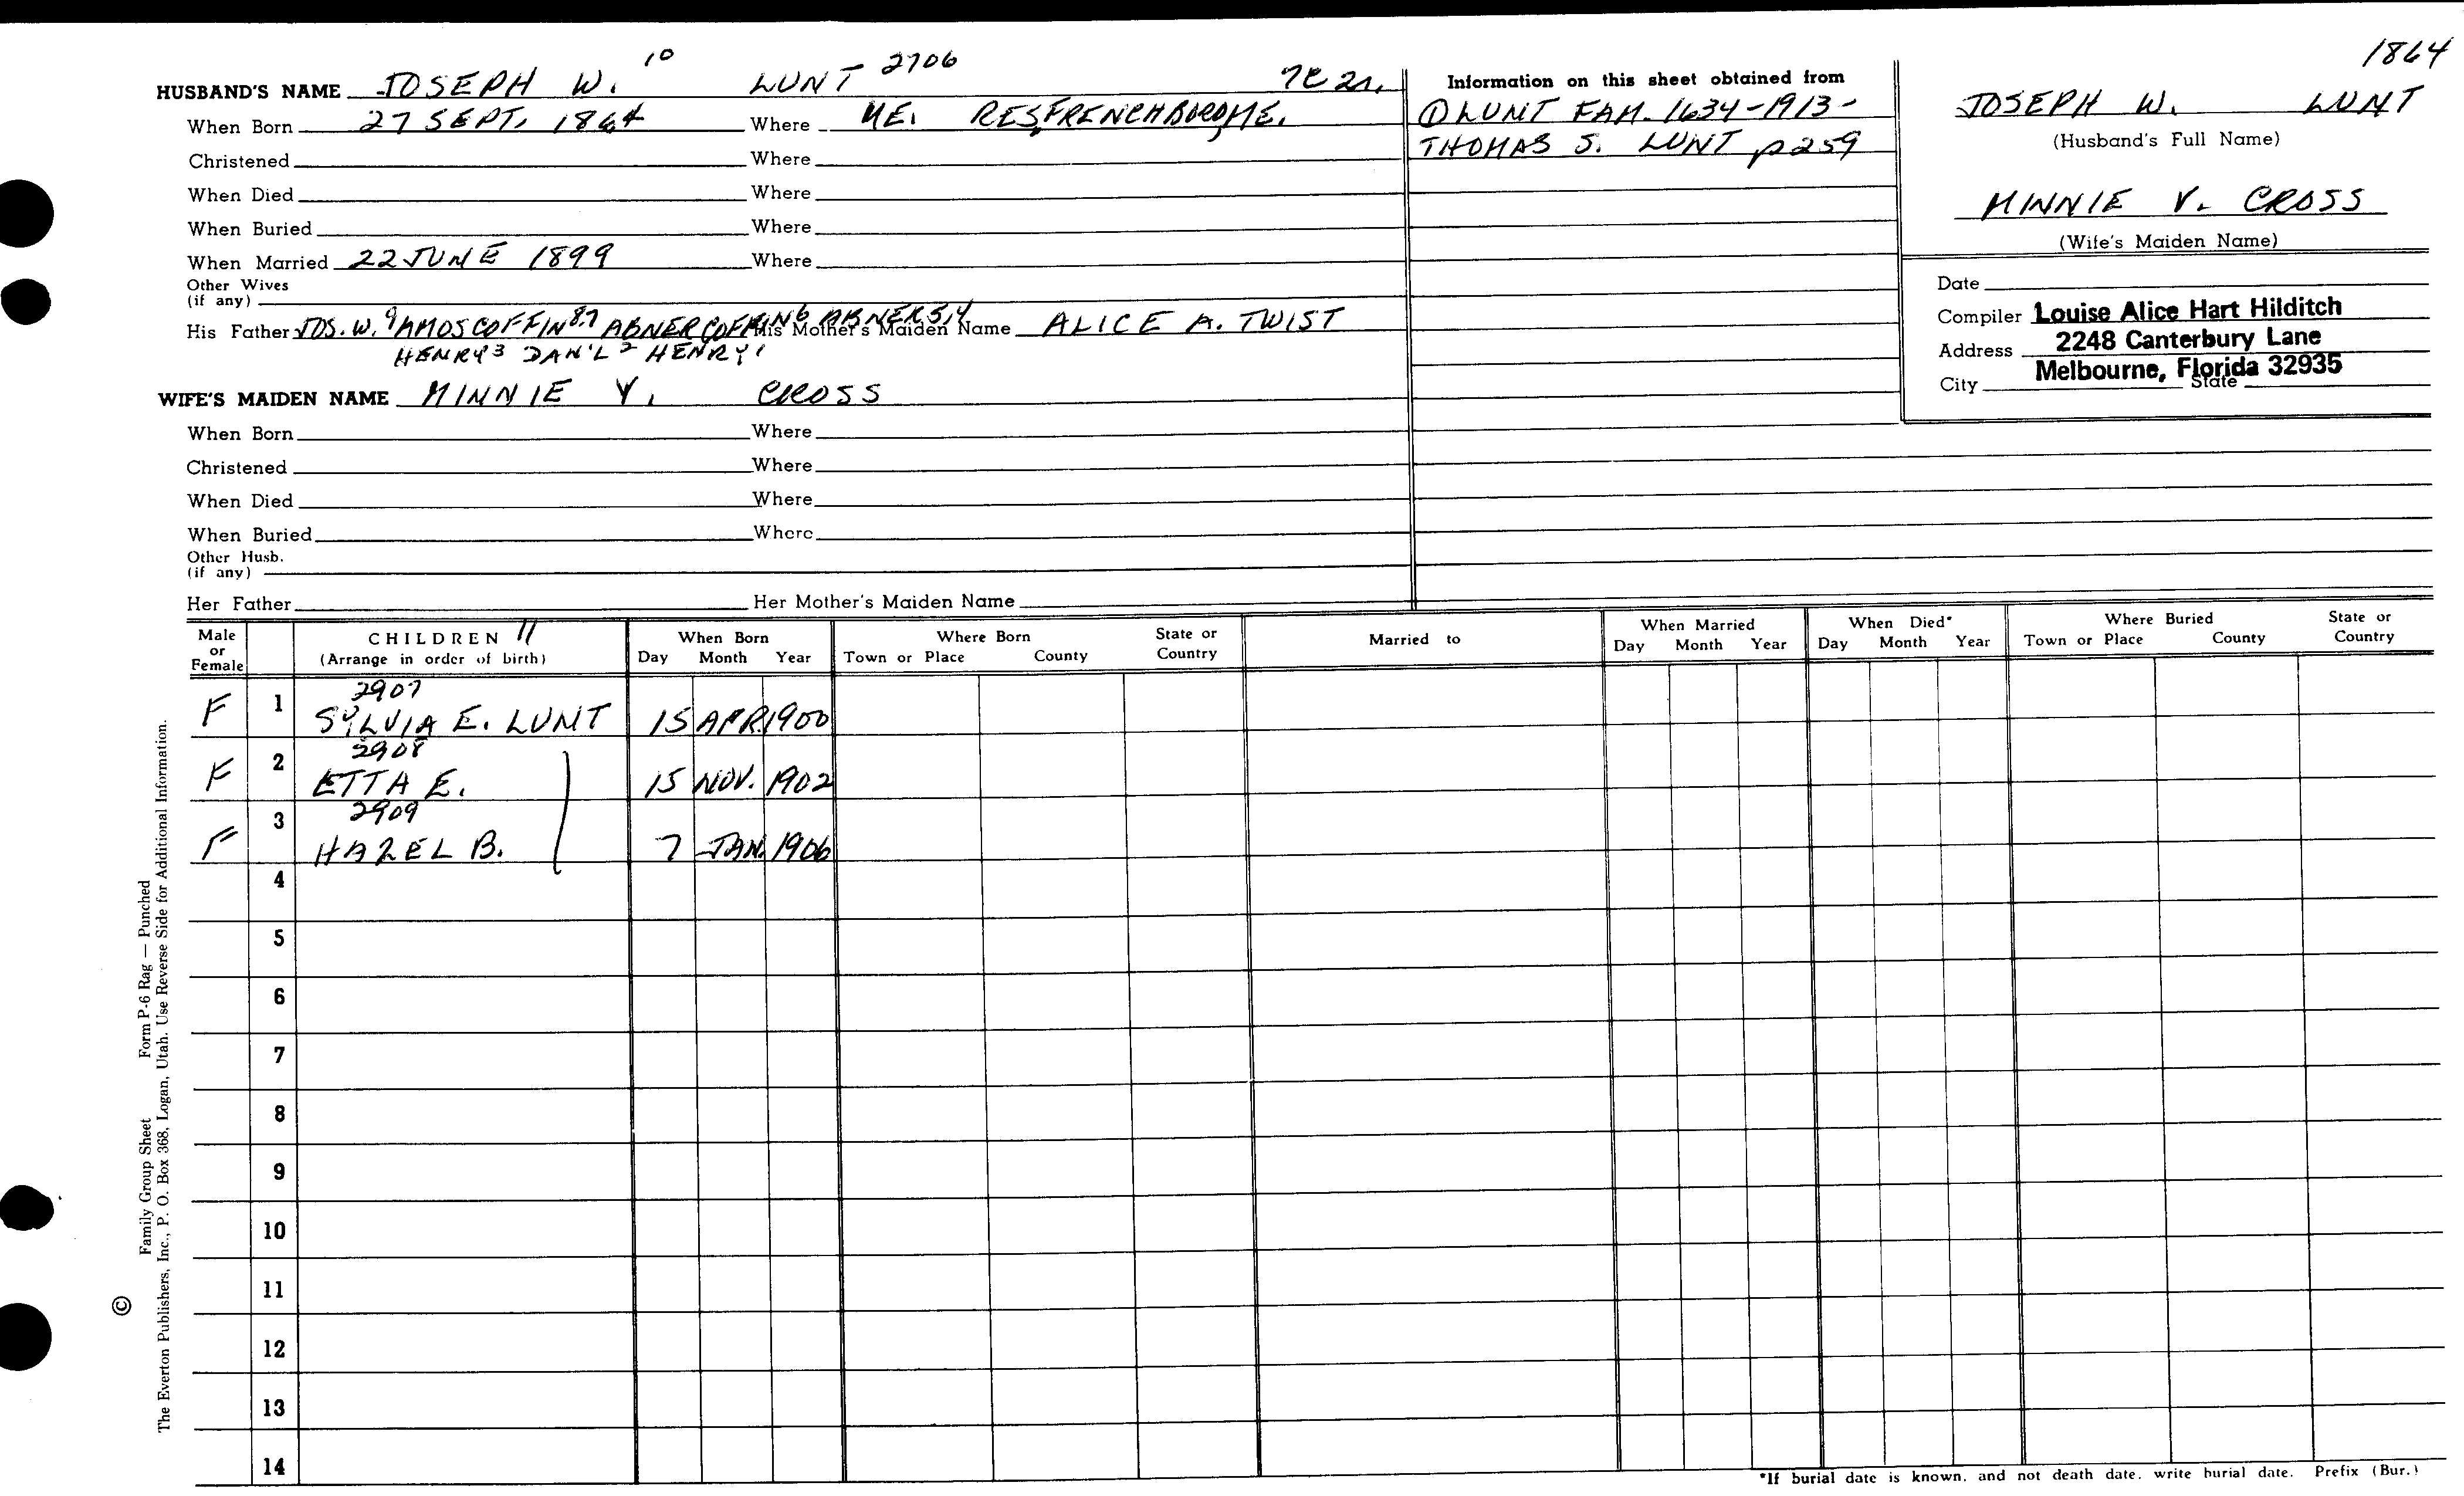 1864
HUSBAND'S NAME JOSEPH W. 10 LUNT 2706
When Born 27 SEPT. 1864 Where ME. RES. FRENCHBORO, ME.
Christened Where
When Died Where
When Buried Where
When Married 22 JUNE 1899 Where
Other Wives
(if any)
His Father JOS. W. 9 AMOS COFFIN 8.7 ABNER COFFIN 6 ABNER 5,4 His Mother's Maiden Name ALICE A. TWIST
HENRY 3 DAN'L 2 HENRY 1
WIFE'S MAIDEN NAME MINNIE V. CROSS
When Born Where
Christened Where
When Died Where
When Buried Where
Other Husb.
(if any)
Her Father Her Mother's Maiden Name
Information on this sheet obtained from
① LUNT FAM. 1634-1913-
THOMAS S. LUNT p259
JOSEPH W. LUNT
(Husband's Full Name)
MINNIE V. CROSS
(Wife's Maiden Name)
Date
Compiler Louise Alice Hart Hilditch
Address 2248 Canterbury Lane
Melbourne, Florida 32935
City State
Male or Female CHILDREN 11 (Arrange in order of birth) When Born Day Month Year Where Born Town or Place County State or Country Married to When Married Day Month Year When Died* Day Month Year Where Buried Town or Place County State or Country
2907
F 1 SYLVIA E. LUNT 15 APR. 1900
2908
F 2 ETTA E. 15 NOV. 1902
2909
F 3 HAZEL B. 7 JAN. 1906
4
5
6
7
8
9
10
11
12
13
14
*If burial date is known, and not death date, write burial date. Prefix (Bur.)
© Family Group Sheet Form P-6 Rag — Punched
The Everton Publishers, Inc., P. O. Box 368, Logan, Utah. Use Reverse Side for Additional Information.